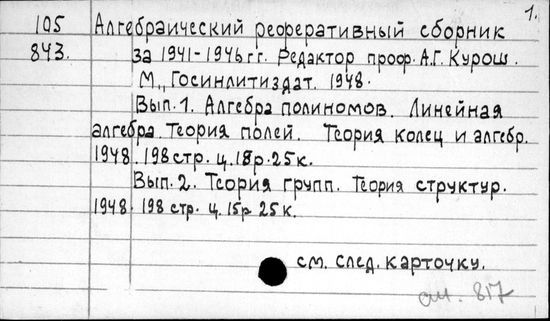 1.
105 Алгебраический реферативный сборник
843. за 1941-1946 гг. Редактор проф. А.Г. Курош.
М., Госинлитиздат. 1948.
Вып. 1. Алгебра полиномов. Линейная
алгебра. Теория полей. Теория колец и алгебр.
1948. 198 стр. ц. 18р. 25к.
Вып. 2. Теория групп. Теория структур.
1948. 198 стр. ц. 15р 25к.
см. след. карточку.
817